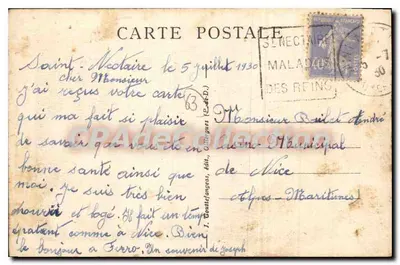 CARTE POSTALE
Saint-Nectaire le 5 juillet 1930
Cher Monsieur
J'ai reçus votre carte
qui ma fait si plaisir
de savoir que vous êté en
bonne santé ainsi que
moi. Je suis très bien
nourrit et logé. Il fait un temp
épatant comme à Nice. Bien
le bonjour à Ferro. Un souvenir de Joseph
63
ST NECTAIRE
MALADIES
DES REINS
30
Monsieur André
Municipal
de Nice
Alpes-Maritimes
CPA de Collection